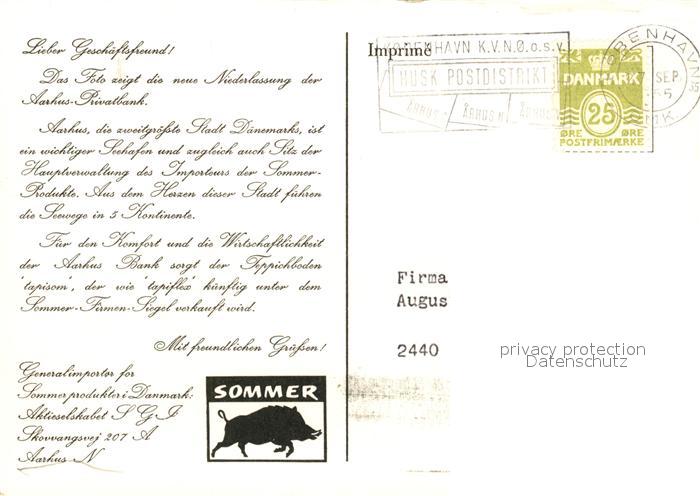 Lieber Geschäftsfreund!
Das Foto zeigt die neue Niederlassung der
Aarhus-Privatbank.
Aarhus, die zweitgrößte Stadt Dänemarks, ist
ein wichtiger Seehafen und zugleich auch Sitz der
Hauptverwaltung des Importeurs der Sommer-
Produkte. Aus dem Herzen dieser Stadt führen
die Seewege in 5 Kontinente.
Für den Komfort und die Wirtschaftlichkeit
der Aarhus Bank sorgt der Teppichboden
"tapisom", der wie "tapiflex" künftig unter dem
Sommer-Firmen-Siegel verkauft wird.
Mit freundlichen Grüßen!
Generalimportør for
Sommer produkter i Danmark:
Aktieselskabet S G I
Skovvangsvej 207 A
Aarhus N
SOMMER
Imprimé
KØBENHAVN K.V.N.Ø.o.s.v.
HUSK POSTDISTRIKT
ÅRHUS
ÅRHUS N
ÅRHUS
KØBENHAVN
SEP.
MK.
DANMARK
25
ØRE ØRE
POSTFRIMÆRKE
Firma
Augus
2440
privacy protection
Datenschutz